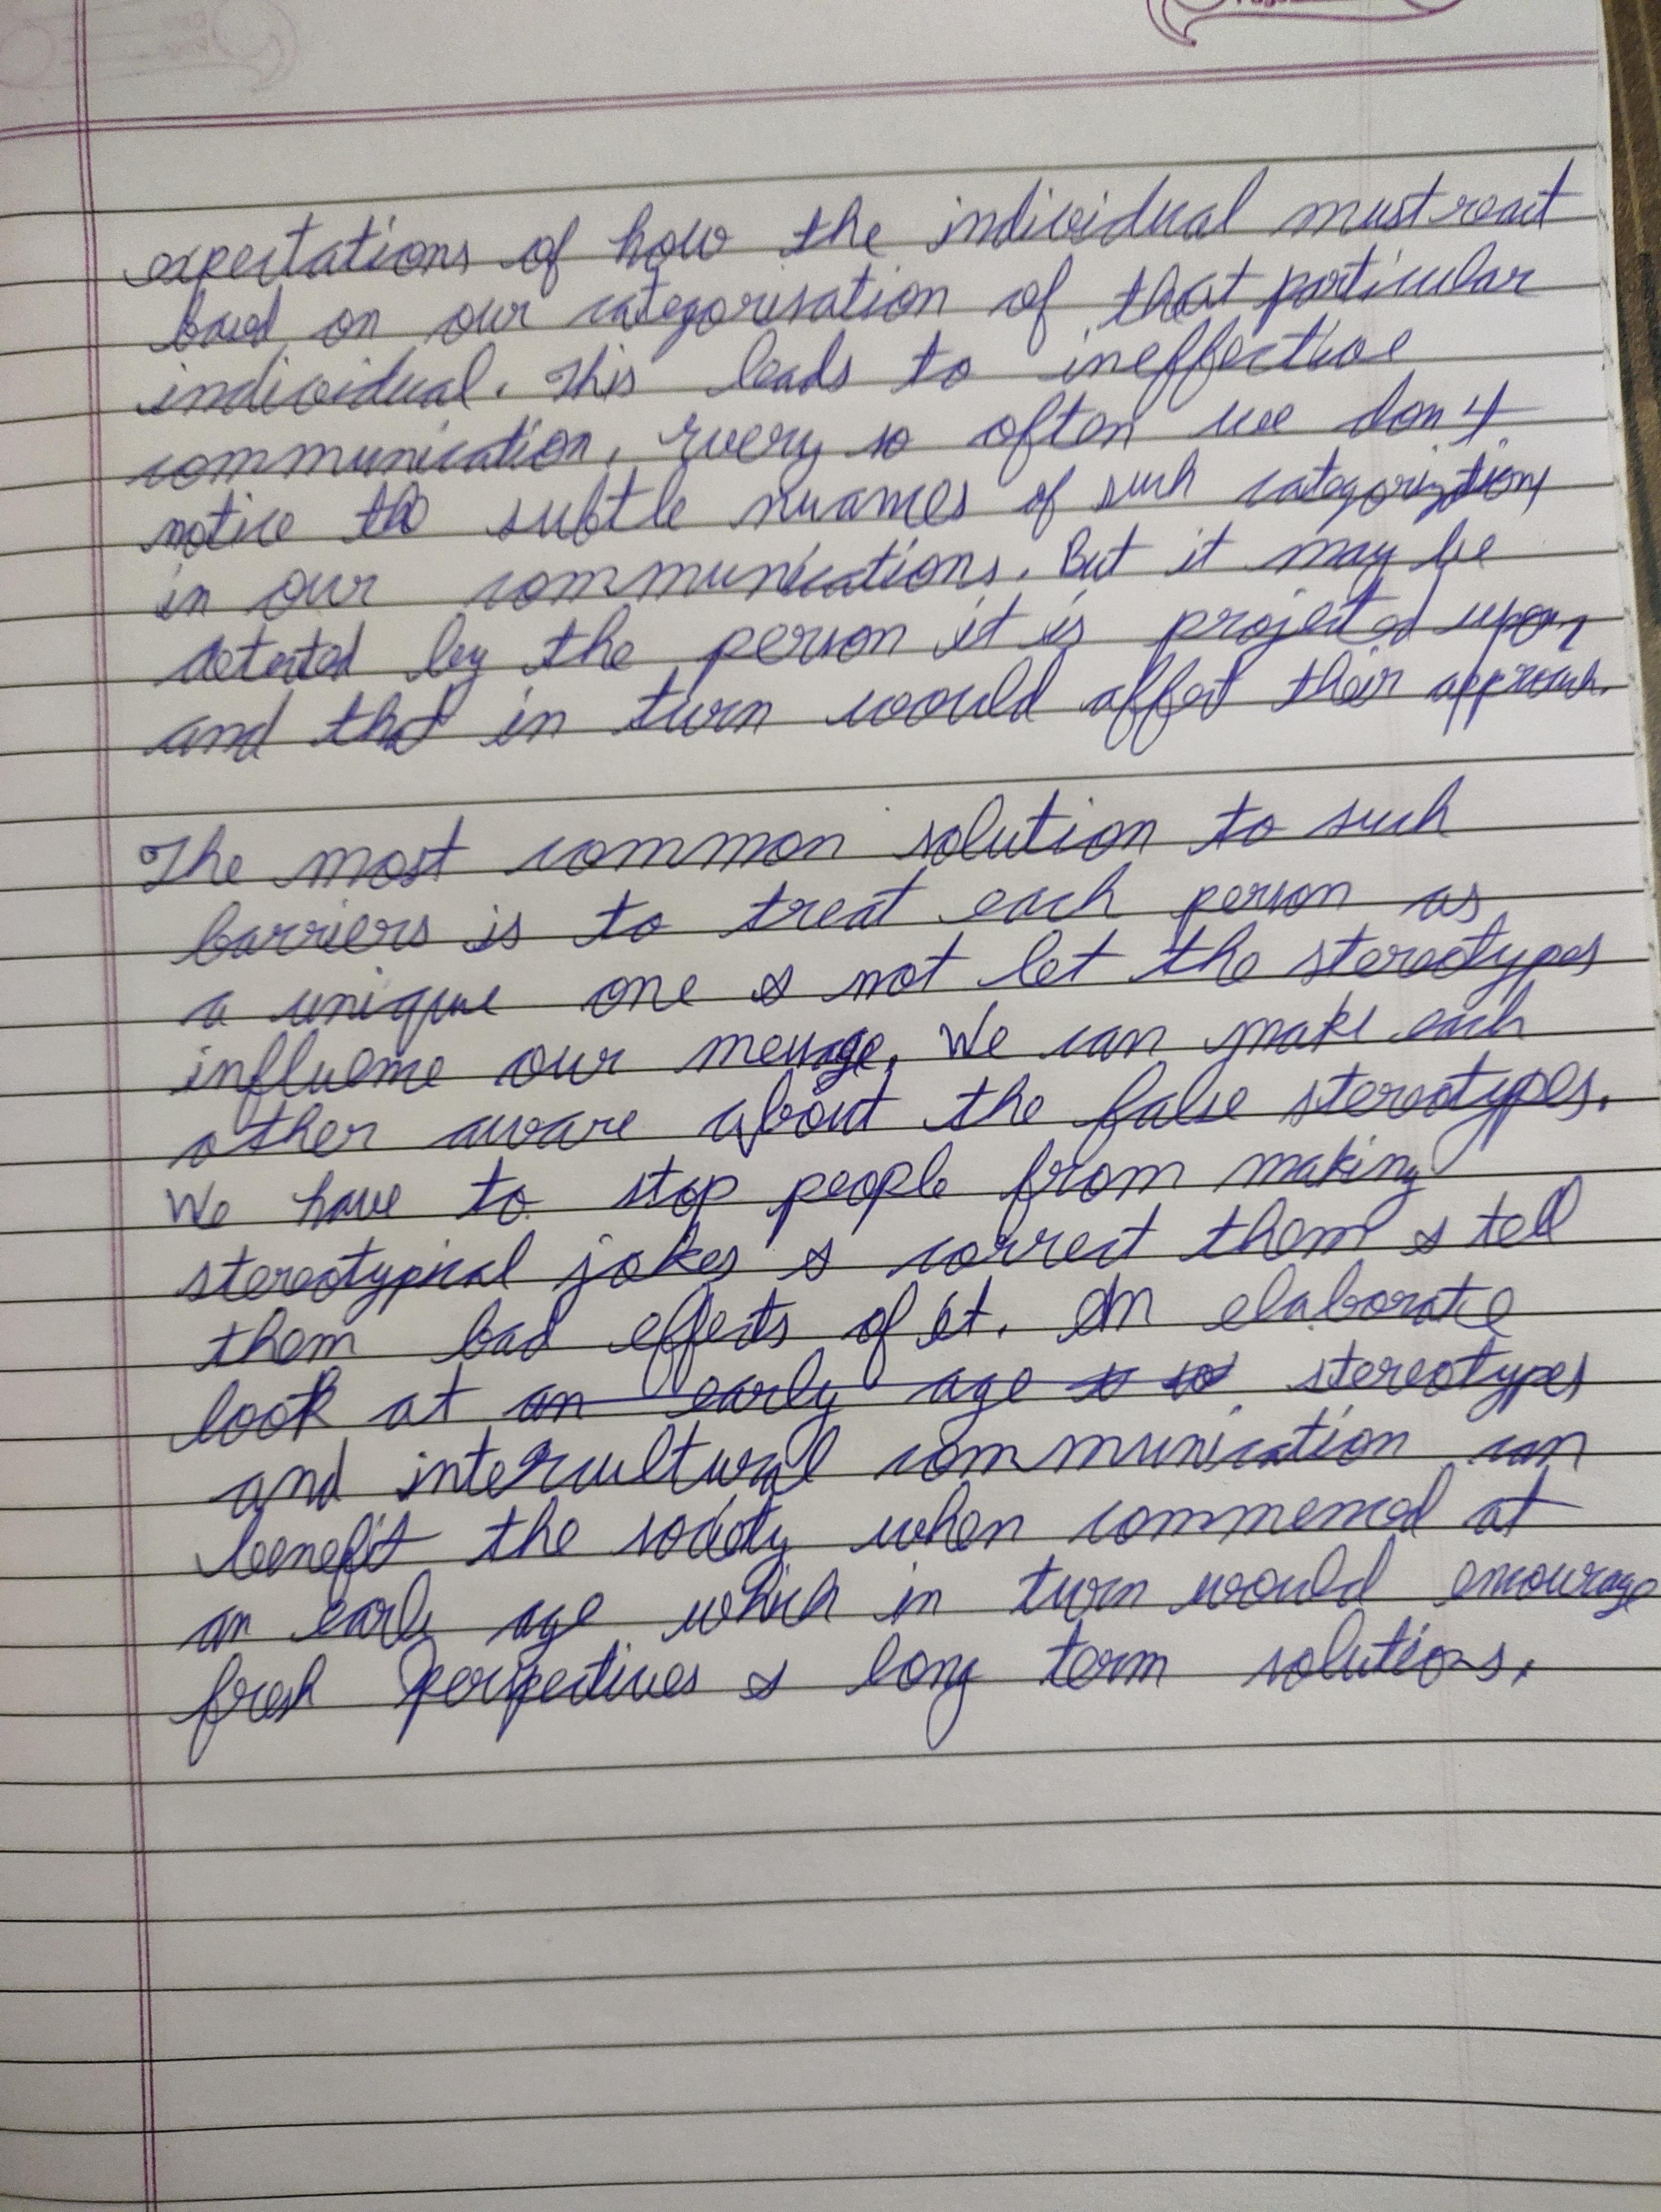 expectations of how the individual must react
based on our categorisation of that particular
individual. This leads to ineffective
communication. Every so often we don't
notice the subtle nuances of such categorizations
in our communications. But it may be
detected by the person it is projected upon,
and that in turn would affect their approach.
The most common solution to such
barriers is to treat each person as
a unique one & not let the stereotypes
influence our message. We can make each
other aware about the false stereotypes.
We have to stop people from making
stereotypical jokes & correct them & tell
them bad effects of it. An elaborate
look at an early age stereotypes
and intercultural communication can
benefit the society when commenced at
an early age which in turn would encourage
fresh perspectives & long term solutions.